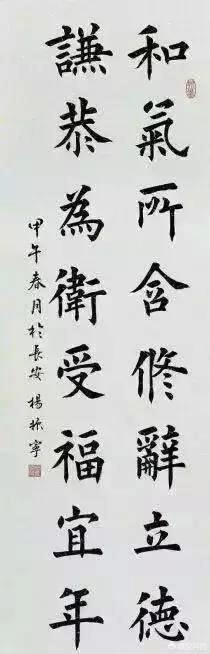 和氣所含修辭立德
謙恭為衛受福宜年
甲午春月於長安楊振寧